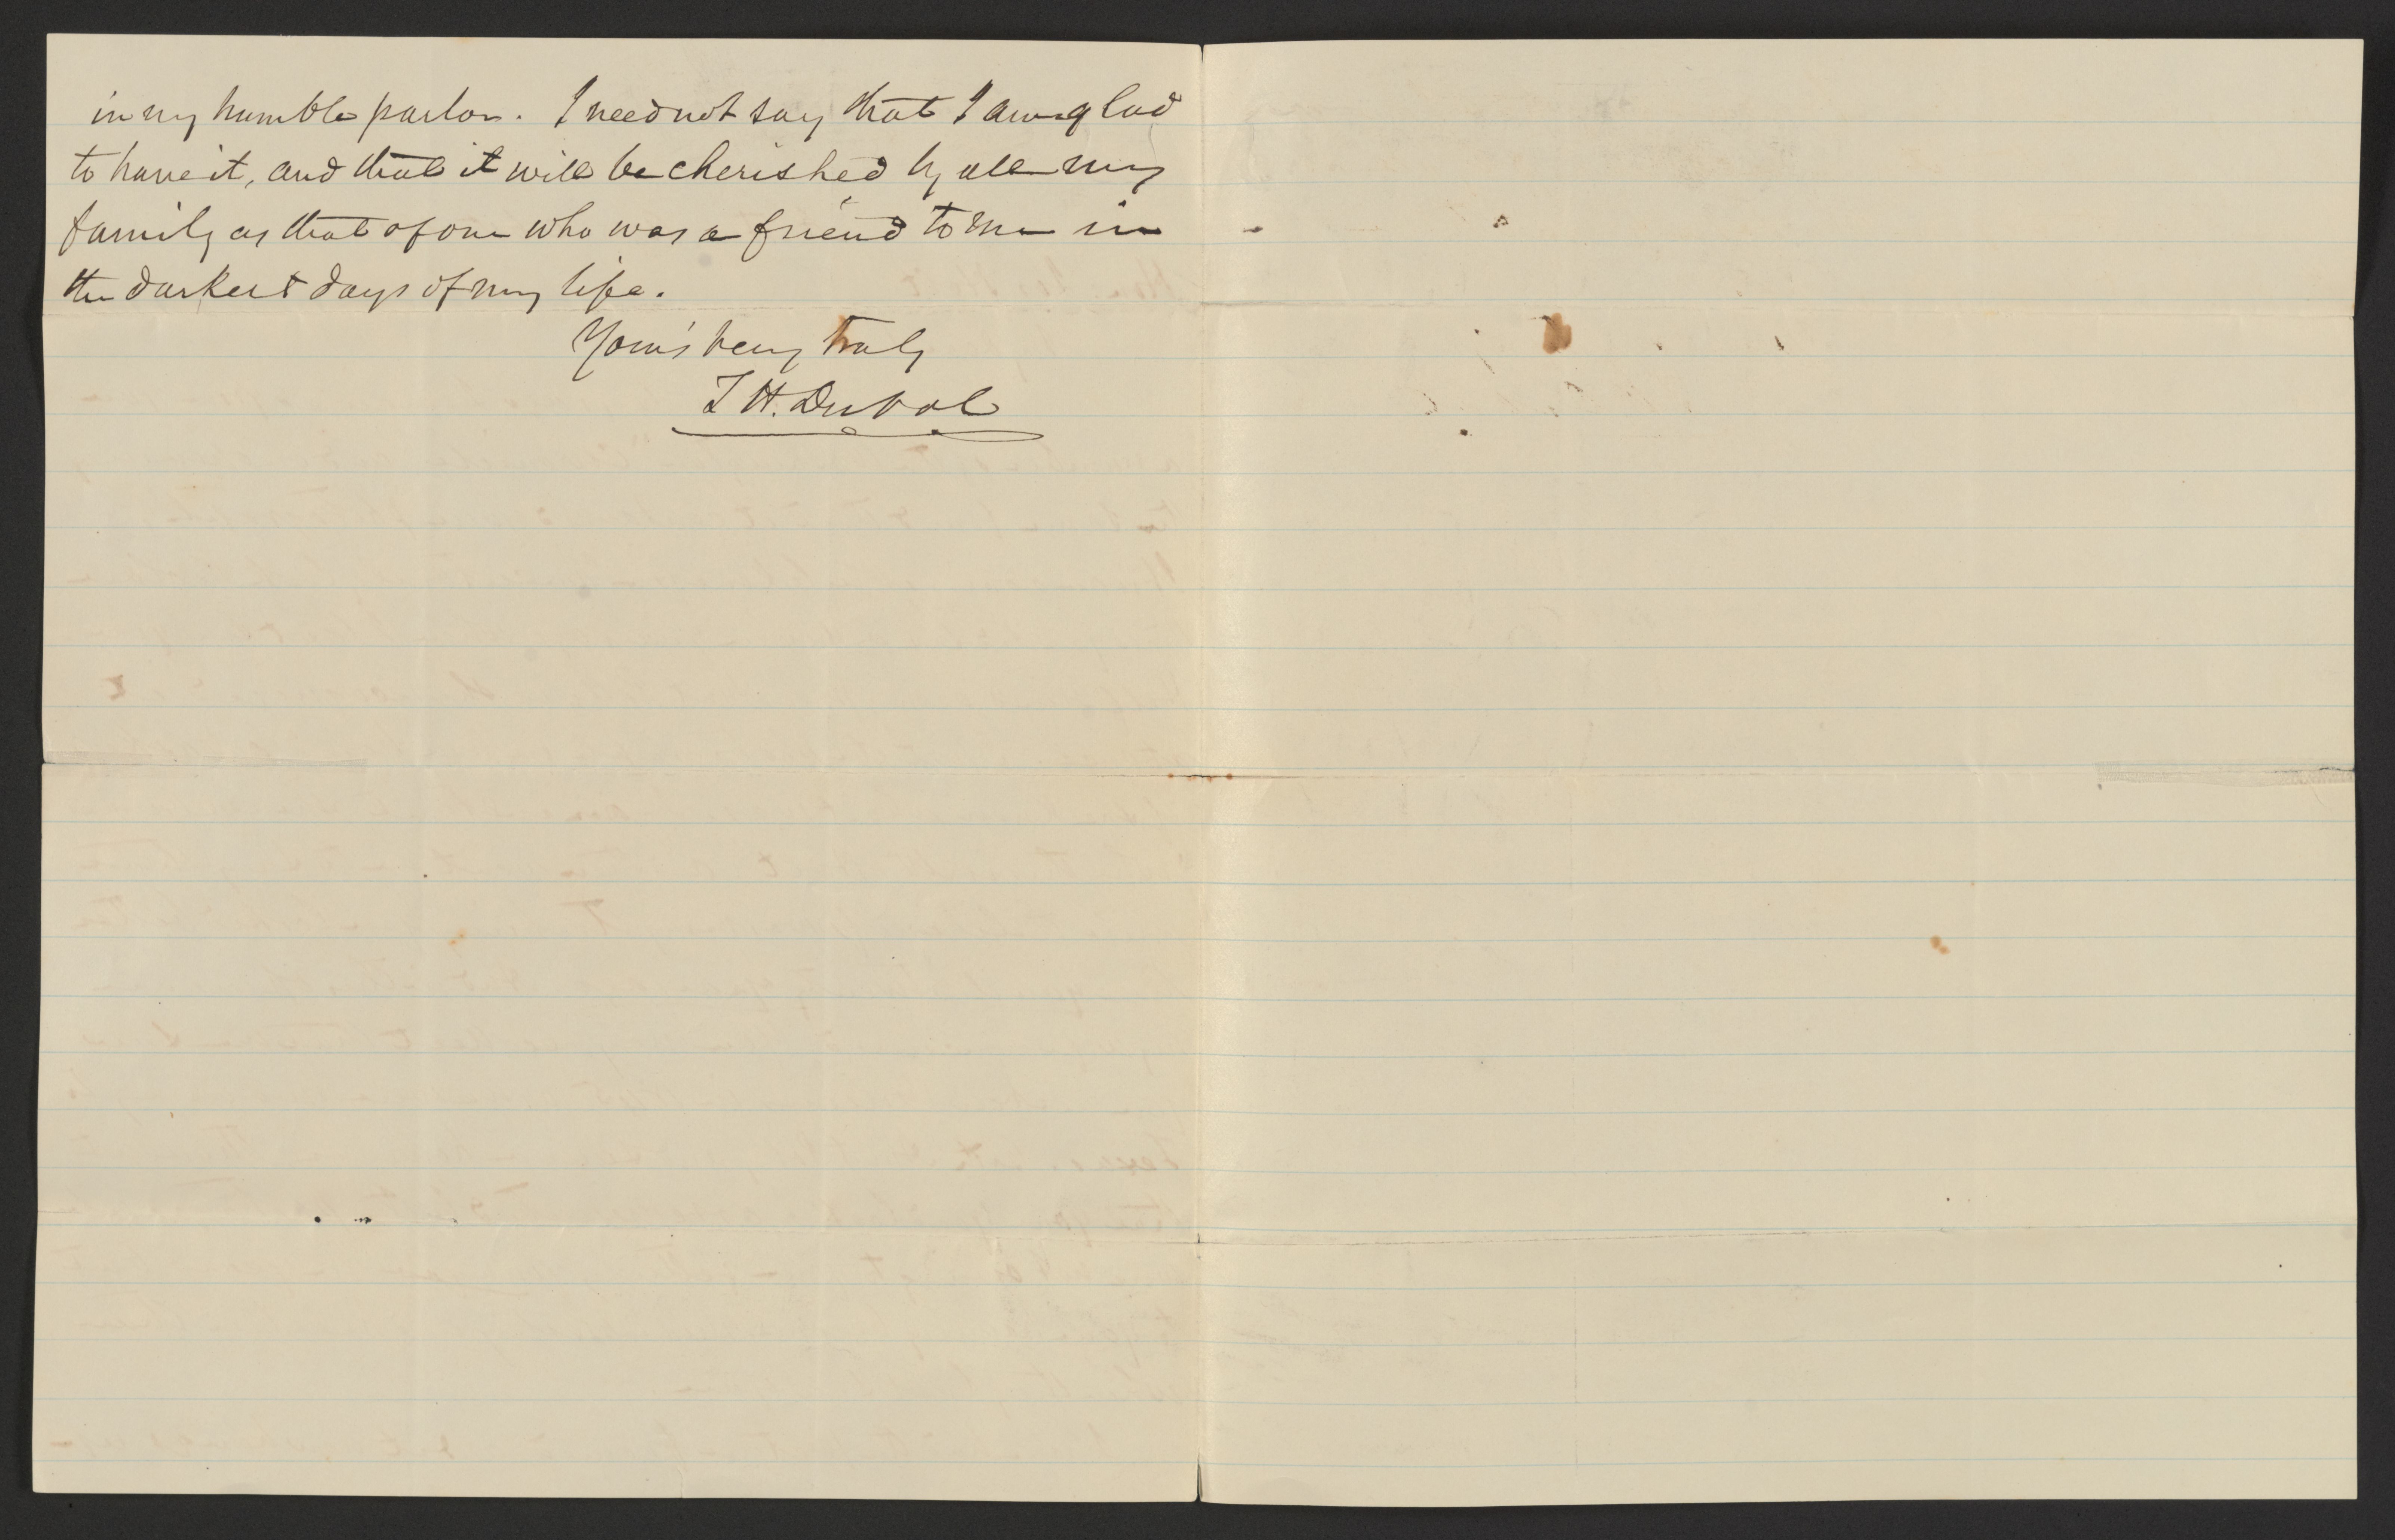 in my humble parlor. I need not say that I am glad
to have it, and that it will be cherished by all my
family as that of one who was a friend to me in
the darkest days of my life.
Your's very truly
T H. Duval